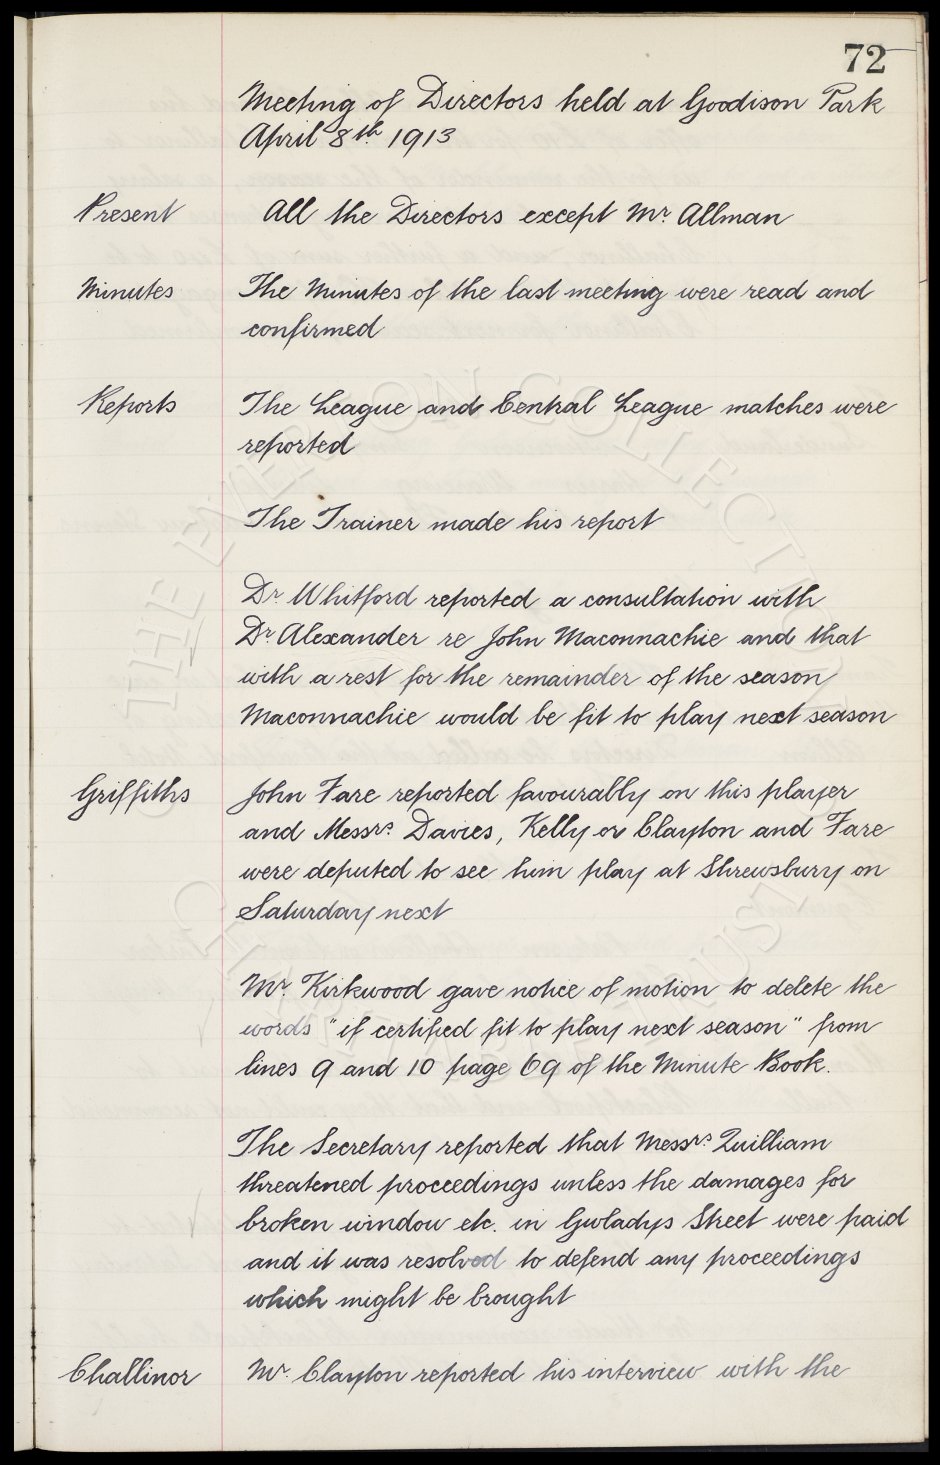 72
Meeting of Directors held at Goodison Park
April 8th 1913
Present All the Directors except Mr. Allman
Minutes The Minutes of the last meeting were read and
confirmed
Reports The League and Central League matches were
reported
The Trainer made his report
Dr. Whitford reported a consultation with
Dr. Alexander re John Maconnachie and that
with a rest for the remainder of the season
Maconnachie would be fit to play next season
Griffiths John Fare reported favourably on this player
and Messrs. Davies, Kelly or Clayton and Fare
were deputed to see him play at Shrewsbury on
Saturday next
Mr. Kirkwood gave notice of motion to delete the
words "if certified fit to play next season" from
lines 9 and 10 page 69 of the Minute Book.
The Secretary reported that Messrs. Quilliam
threatened proceedings unless the damages for
broken window etc. in Gwladys Street were paid
and it was resolved to defend any proceedings
which might be brought
Challinor Mr. Clayton reported his interview with the
THE EVERTON COLLECTION